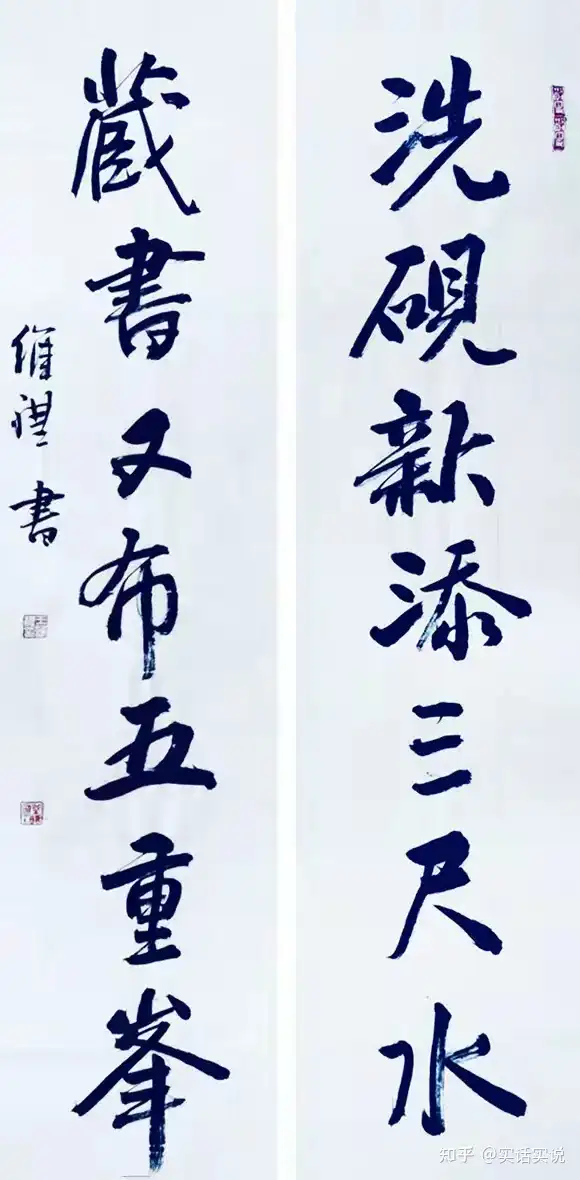 洗硯新添三尺水
藏書又布五重峯
維 書
知乎 @实话实说